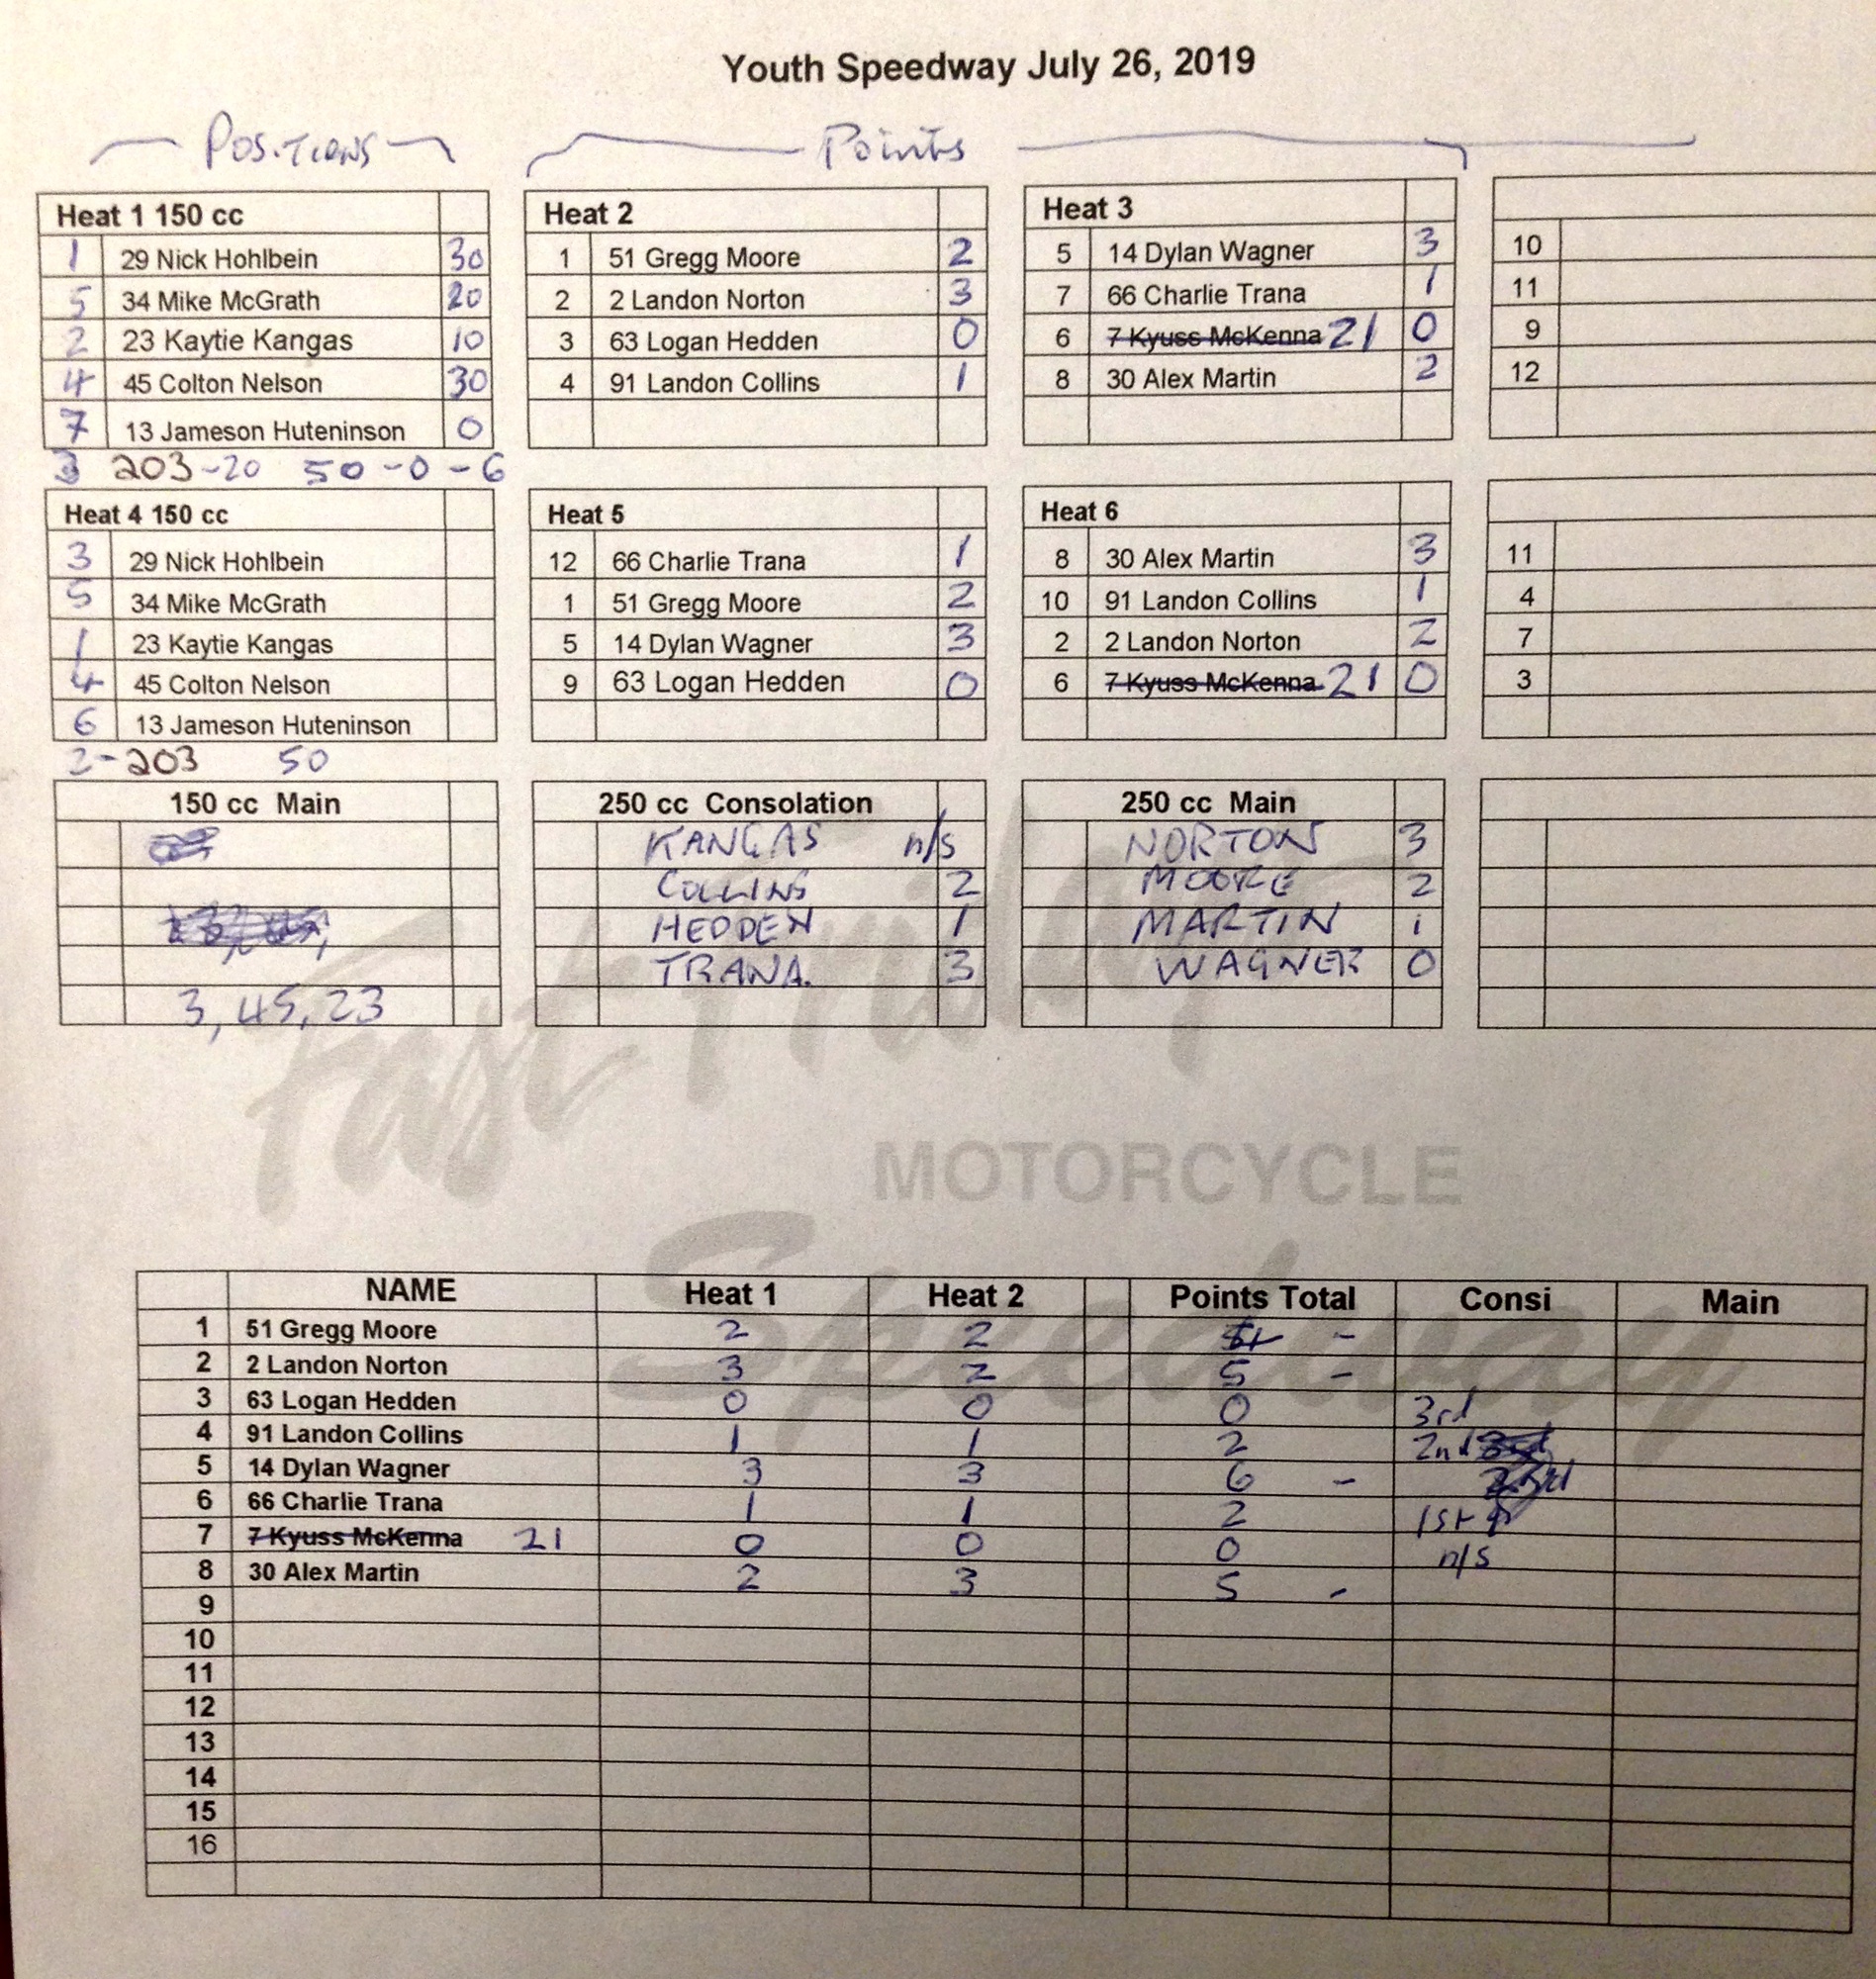 Youth Speedway July 26, 2019
POSITIONS Points
Heat 1 150 cc
1 29 Nick Hohlbein 30
5 34 Mike McGrath 20
2 23 Kaytie Kangas 10
4 45 Colton Nelson 30
7 13 Jameson Huteninson 0
3 203-20 50-0-6
Heat 2
1 51 Gregg Moore 2
2 2 Landon Norton 3
3 63 Logan Hedden 0
4 91 Landon Collins 1
Heat 3
5 14 Dylan Wagner 3
7 66 Charlie Trana 1
6 7 Kyuss McKenna 21 0
8 30 Alex Martin 2
10
11
9
12
Heat 4 150 cc
3 29 Nick Hohlbein
5 34 Mike McGrath
1 23 Kaytie Kangas
4 45 Colton Nelson
6 13 Jameson Huteninson
2-203 50
Heat 5
12 66 Charlie Trana 1
1 51 Gregg Moore 2
5 14 Dylan Wagner 3
9 63 Logan Hedden 0
Heat 6
8 30 Alex Martin 3
10 91 Landon Collins 1
2 2 Landon Norton 2
6 7 Kyuss McKenna 21 0
11
4
7
3
150 cc Main
3, 45, 23
250 cc Consolation
KANGAS n/s
COLLINS 2
HEDDEN 1
TRANA. 3
250 cc Main
NORTON 3
MOORE 2
MARTIN 1
WAGNER 0
Fast Fridays
MOTORCYCLE
Speedway
NAME Heat 1 Heat 2 Points Total Consi Main
1 51 Gregg Moore 2 2 -
2 2 Landon Norton 3 2 5 -
3 63 Logan Hedden 0 0 0 3rd
4 91 Landon Collins 1 1 2 2nd
5 14 Dylan Wagner 3 3 6 -
6 66 Charlie Trana 1 1 2 1st
7 7 Kyuss McKenna 21 0 0 0 n/s
8 30 Alex Martin 2 3 5 -
9
10
11
12
13
14
15
16